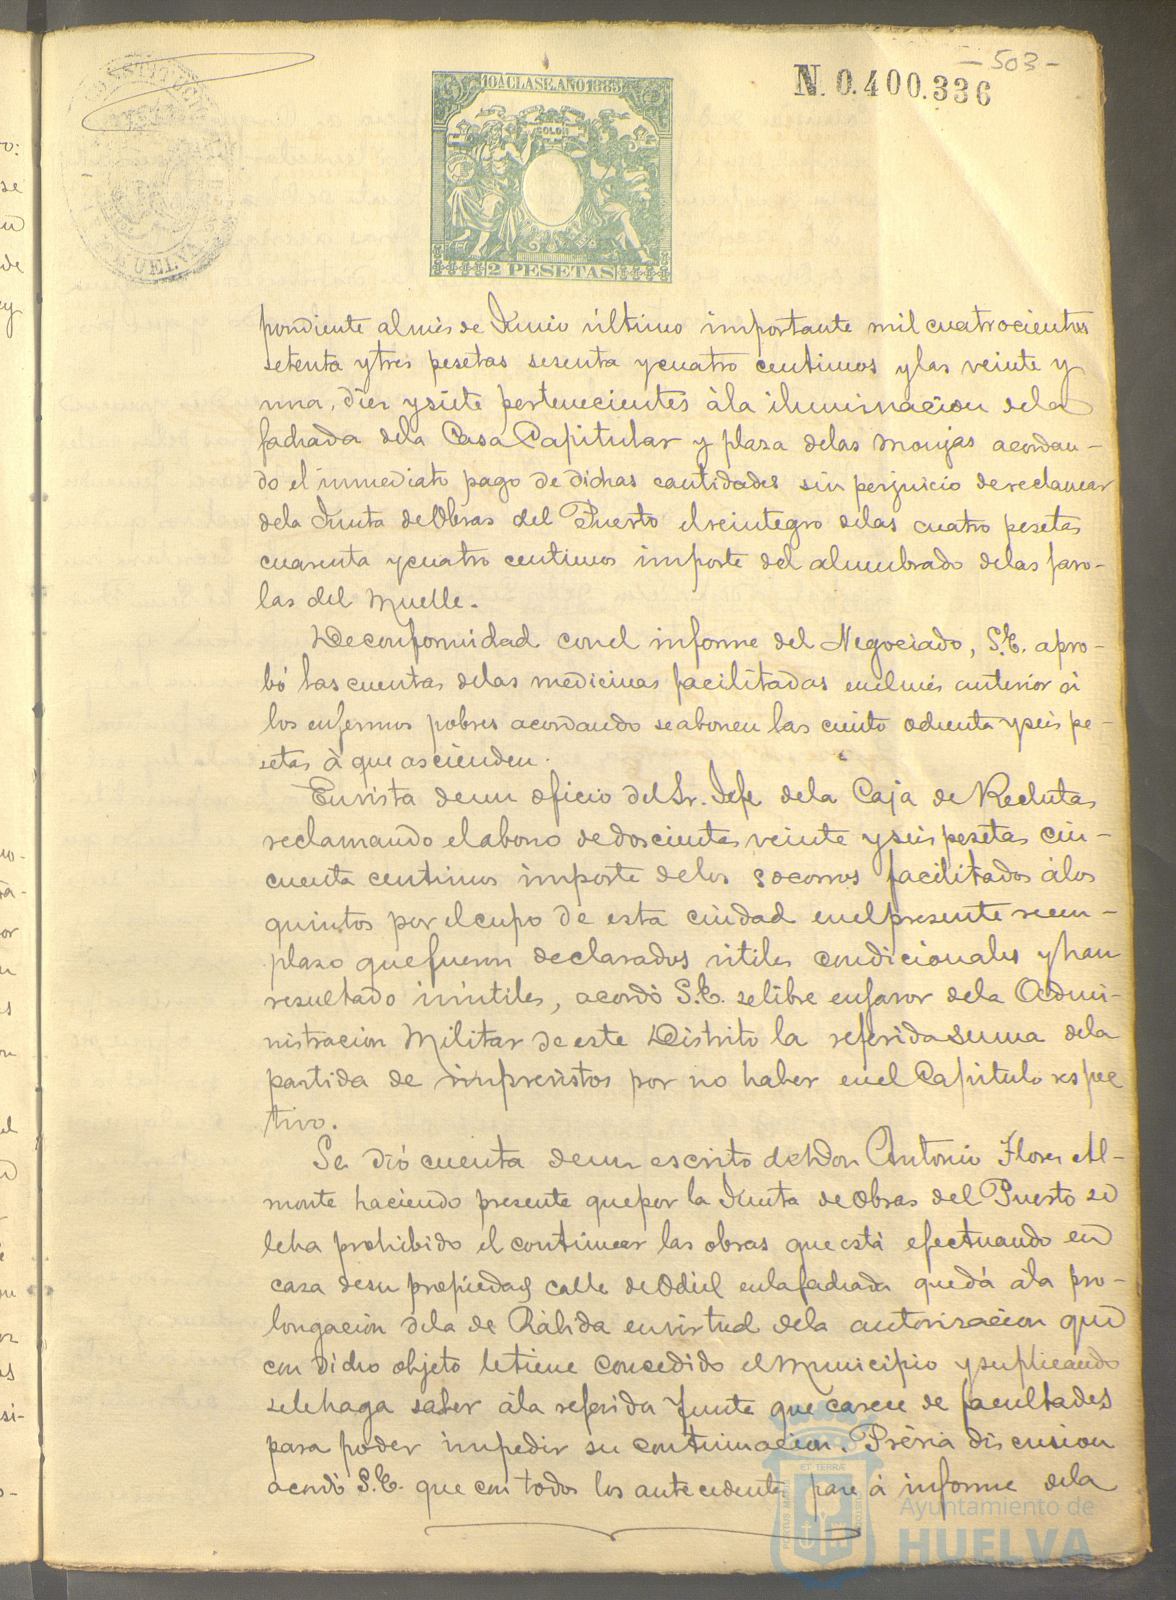 - 503 -
N. 0.400.336
10A CLASE. AÑO 1885
COLON
2 PESETAS
HUELVA
pondiente al més de Junio último importante mil cuatrocientos
setenta y tres pesetas sesenta y cuatro centimos y las veinte y
una, diez y siete pertenecientes à la iluminacion de la
fachada de la Casa Capitular y plaza de las Monjas acordan-
do el inmediato pago de dichas cantidades sin perjuicio de reclamar
de la Junta de Obras del Puerto el reintegro de las cuatro pesetas
cuarenta y cuatro centimos importe del alumbrado de las faro-
las del Muelle.
De conformidad con el informe del Negociado, S.E. apro-
bó las cuentas de las medicinas facilitadas en el més anterior à
los enfermos pobres acordando se abonen las ciento ochenta y seis pe-
setas à que ascienden.
En vista de un oficio del Sr. Jefe de la Caja de Reclutas
reclamando el abono de doscientas veinte y seis pesetas cin-
cuenta centimos importe de los socorros facilitados à los
quintos por el cupo de esta ciudad en el presente reem-
plazo que fueron declarados útiles condicionales y han
resultado inútiles, acordó S.E. se libre en favor de la Admi-
nistracion Militar de este Distrito la referida suma de la
partida de imprevistos por no haber en el Capitulo respec
tivo.
Se dió cuenta de un escrito de Don Antonio Flores Al-
monte haciendo presente que por la Junta de Obras del Puerto se
le ha prohibido el continuar las obras que está efectuando en
casa de su propiedad calle de Odiel en la fachada que dá à la pro-
longacion de la de Rábida en virtud de la autorizacion que
con dicho objeto le tiene concedido el Municipio y suplicando
se le haga saber à la referida Junta que carece de facultades
para poder impedir su continuacion. Prévia discusion
acordó S.E. que con todos los antecedentes pase à informe de la
Ayuntamiento de
HUELVA